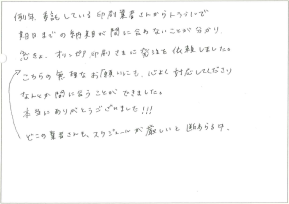 例年、委託している印刷業者さんからトラブルで
期日までの納期が間に合わないことが分かり、
急きょ、オリンピア印刷さまに発注を依頼しました。
こちらの無理なお願いにも、心よく対応してくださり
なんとか間に合うことができました。
本当にありがとうございました!!!
どこの業者さんも、スケジュールが厳しいと断わられる中、